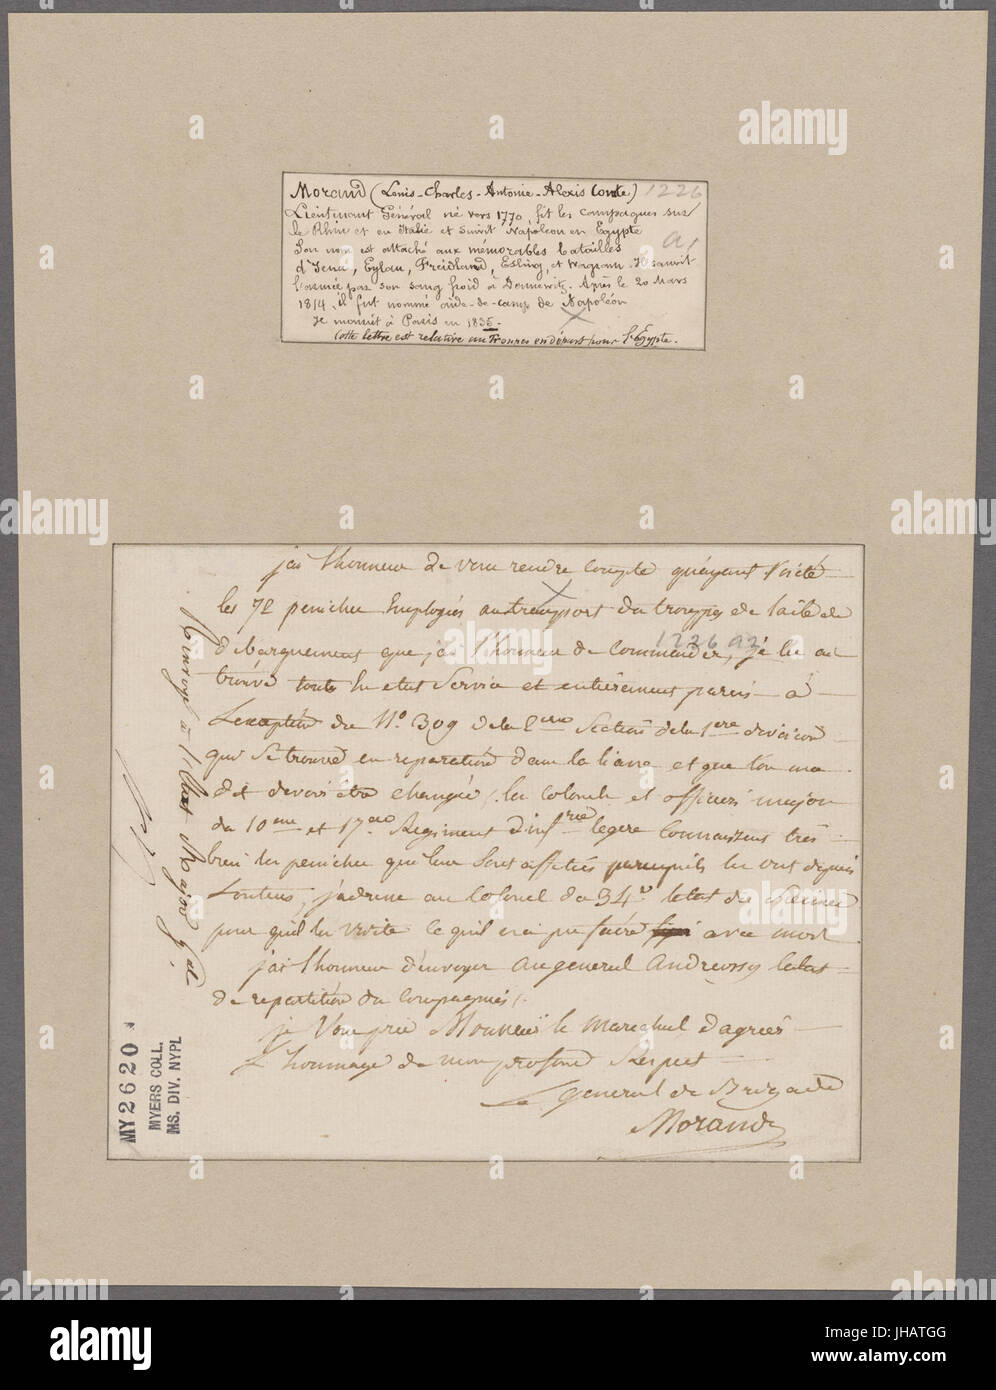 Morand (Louis-Charles-Antonie-Alexis Comte) 1226
Lieutenant Général né vers 1770, fit les campagnes sur
le Rhin et en Italie et suivit Napoléon en Egypte
Son nom est attaché aux mémorables batailles a,
d'Jena, Eylau, Freidland, Esling, et Wagram. Il sauvit
l'armée par son sang froid à Dennewitz. Après le 20 Mars
1814, il fut nommé aide-de-camp de Napoléon
Je mourut à Paris en 1835.
Cette lettre est relative aux Troupes en départ pour l'Egypte.
j'ai l'honneur de vous rendre compte qu'ayant visité
les 72 peniches Employés au transport du trouppes de laile de
débarquement que j'ai l'honneur de commander, je les ai
1226 a2
trouvé touts en etat Service et entièrement parés à
Lexception du N.o 309 de la 2eme Section de la 1ere division
qui Se trouve en reparation dans la liane et que l'on ma
dit devoir être changée /. les Colonels et officiers major
du 10eme et 17eme Regiment d'infrie legere Connaissent très
bien les peniches qui leur Sont affectés puisqu'ils les ont depuis
Lontems, j'adresse au Colonel du 34e letat des
pour quil les visite ce quil n'a pu faire avec moi
j'ai l'honneur d'envoyer au general Andreossy letat
de repartition du Compagnies /.
je Vous prie Monsieur le Marechal d'agreér
L'hommage de mon profond Respect
Le general de Brigade
Morand
Renvoyé à l'Etat Major Gal.
MY 2620
MYERS COLL.
MS. DIV. NYPL
alamy
a
alamy stock photo
JHATGG
www.alamy.com